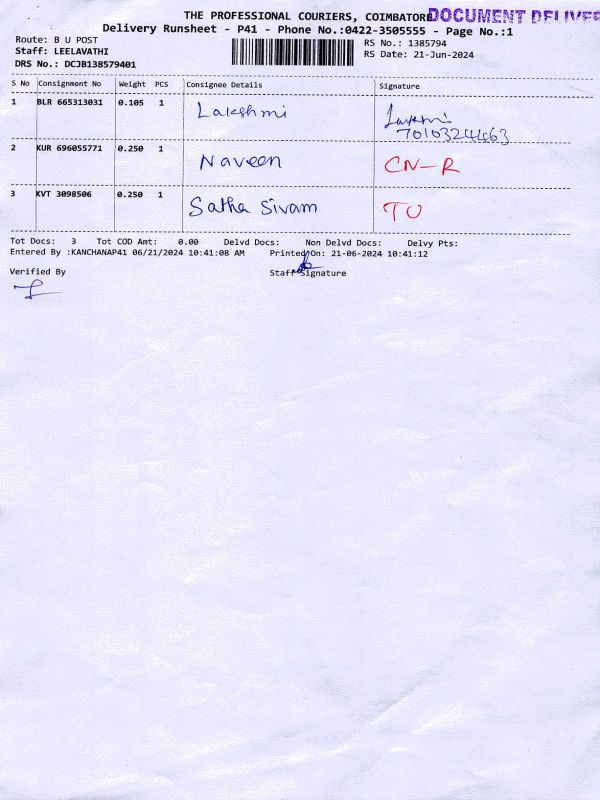 THE PROFESSIONAL COURIERS, COIMBATORE
DOCUMENT DELIVER
Delivery Runsheet - P41 - Phone No.:0422-3505555 - Page No.:1
Route: B U POST
Staff: LEELAVATHI
DRS No.: DCJB138579401
RS No.: 1385794
RS Date: 21-Jun-2024
S No Consignment No Weight PCS Consignee Details Signature
1 BLR 665313031 0.105 1 Lakshmi
2 KUR 696055771 0.250 1 Naveen CN-R
3 KVT 3098506 0.250 1 Satha Sivam TO
Tot Docs: 3 Tot COD Amt: 0.00 Delvd Docs: Non Delvd Docs: Delvy Pts:
Entered By :KANCHANAP41 06/21/2024 10:41:08 AM Printed On: 21-06-2024 10:41:12
Verified By Staff Signature